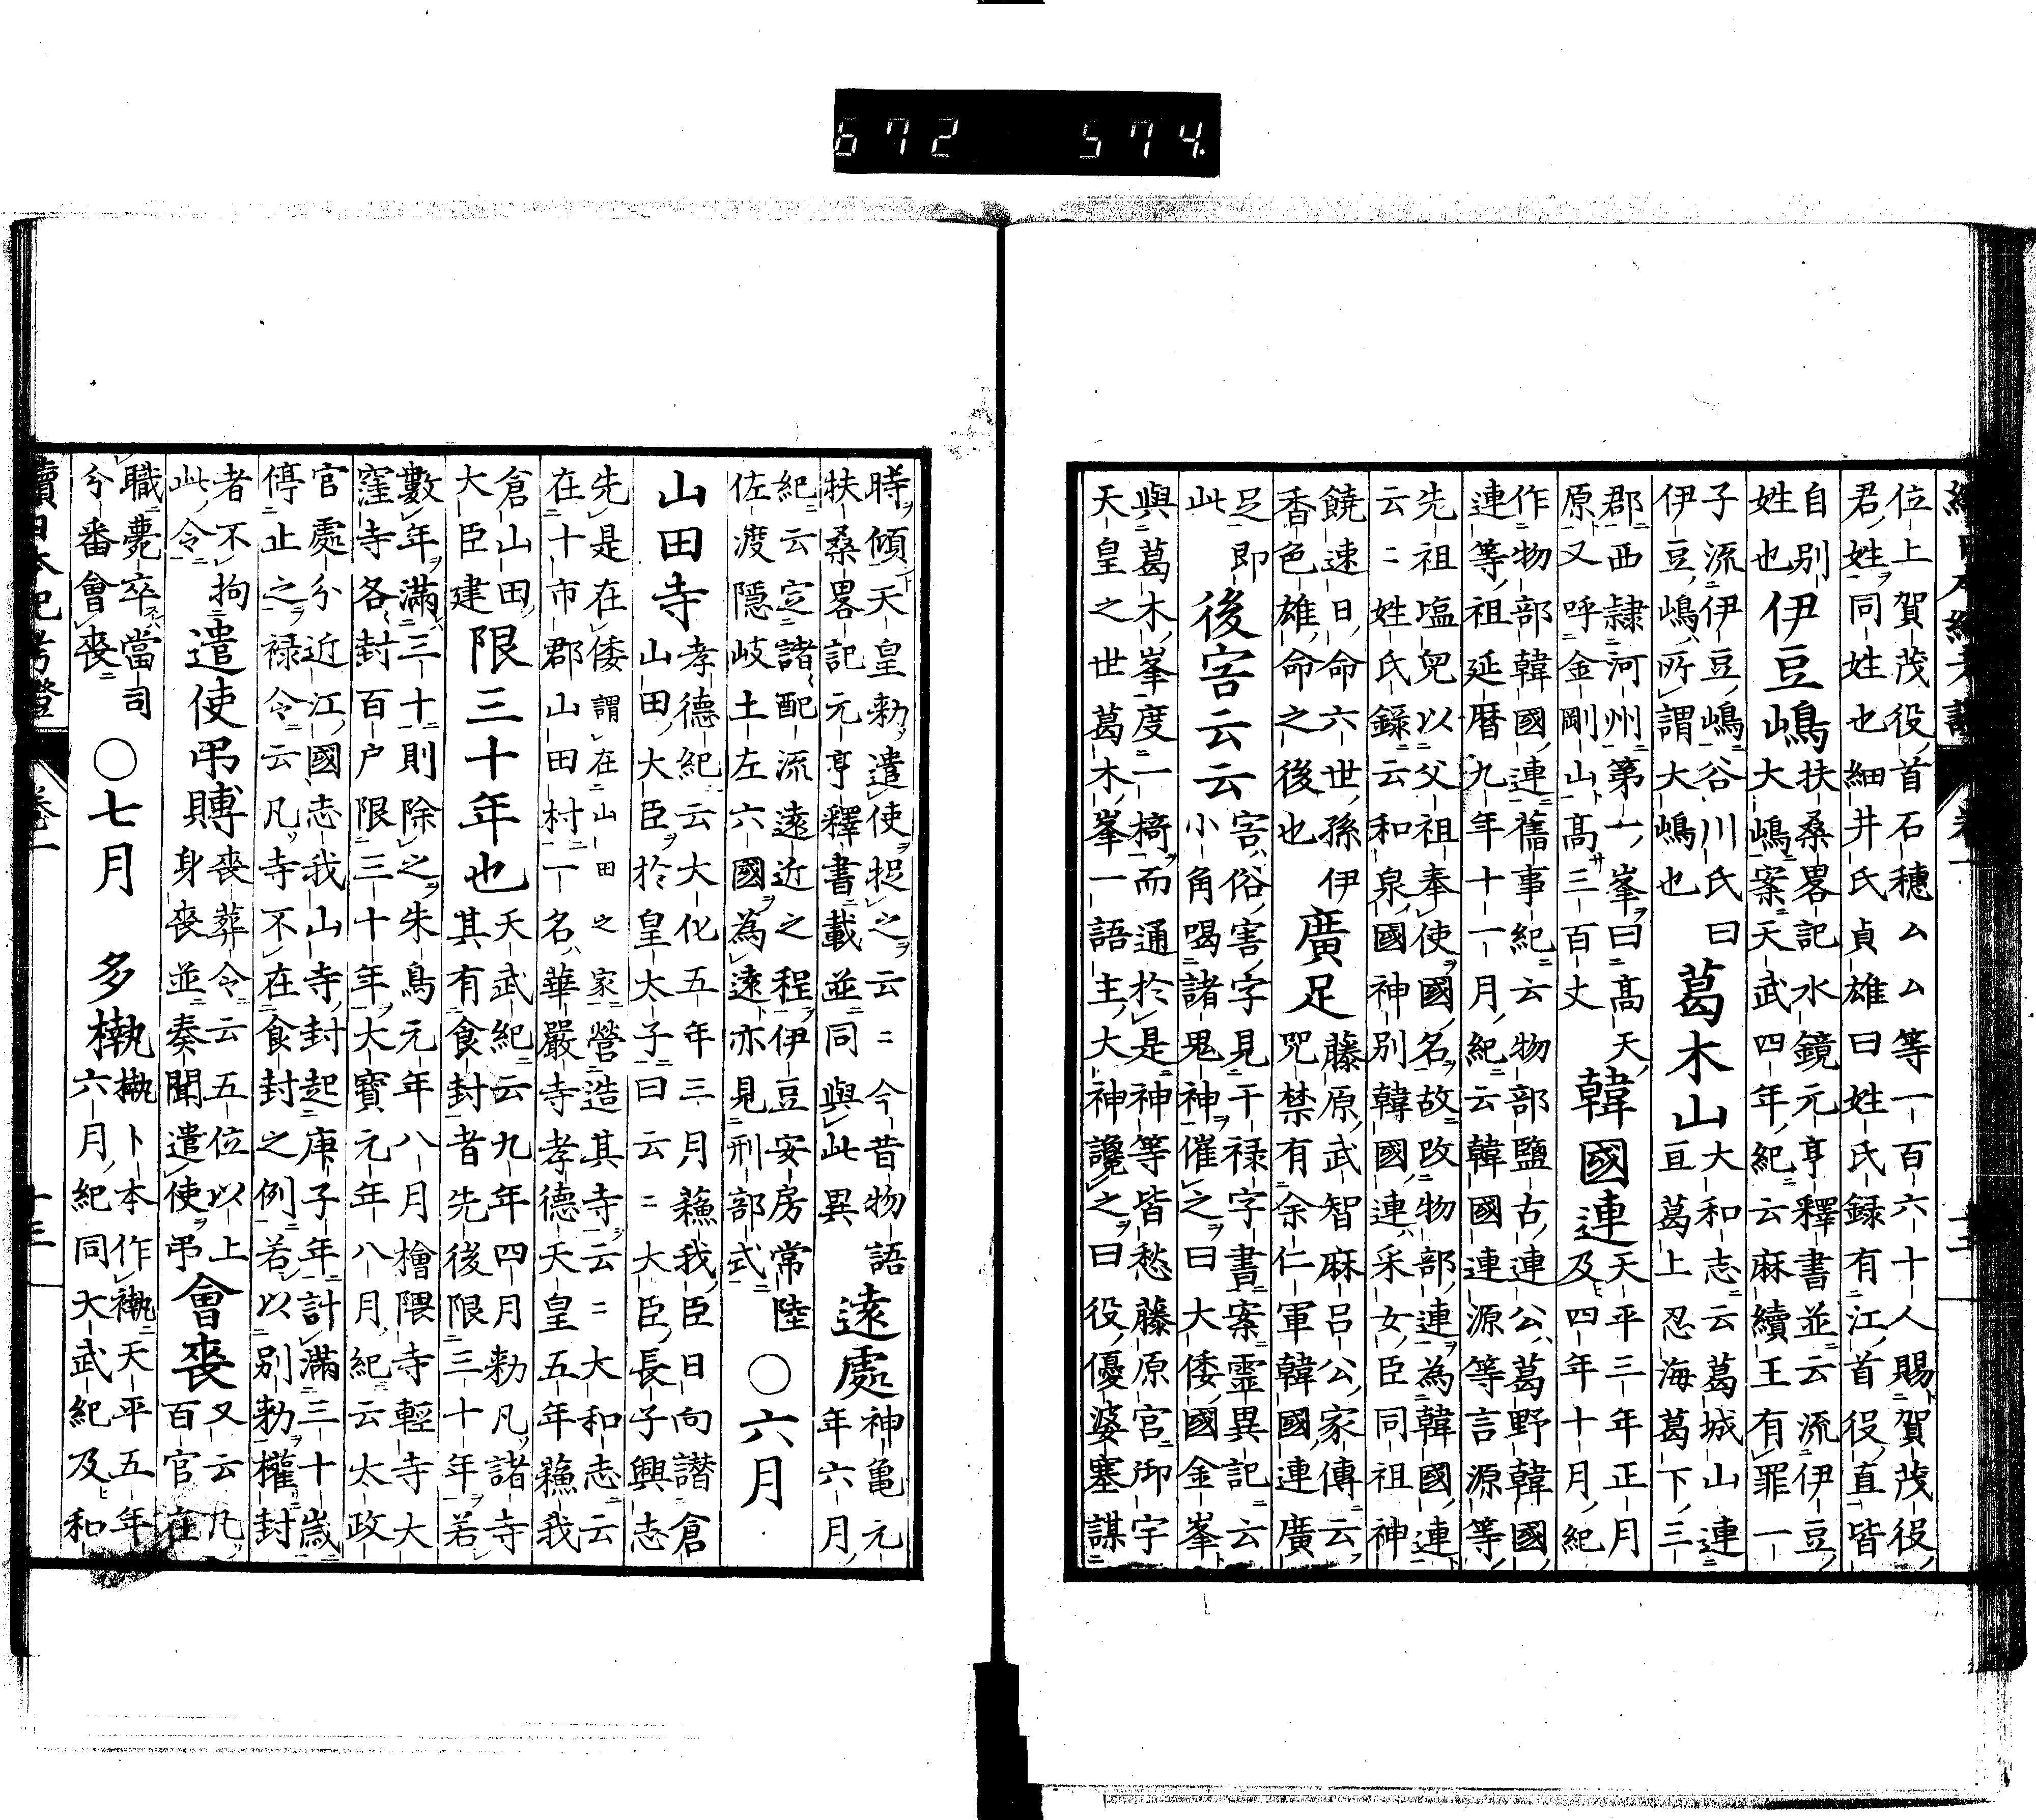 672 574
位上賀茂役首石穗ムム等一百六十人賜賀茂役
君姓同姓也細井氏貞雄曰姓氏録有江首役直皆
自別扶桑畧記水鏡元亨釋書並云流伊豆
姓也 伊豆嶋 大嶋案天武四年紀云麻續王有罪一
子流伊豆嶋谷川氏曰 葛木山 大和志云葛城山連
伊豆嶋所謂大嶋也 亘葛上忍海葛下三
郡西隷河州第一峯曰高天 韓國連 天平三年正月
原又呼金剛山高三百丈 及四年十月紀
作物部韓國連舊事紀云物部鹽古連公葛野韓國
連等祖延暦九年十一月紀云韓國連源等言源等
先祖塩兒以父祖奉使國名故改物部連為韓國連
云〻姓氏録云和泉國神別韓國連采女臣同祖神
饒速日命六世孫伊 廣足 藤原武智麻呂公家傳云
香色雄命之後也 咒禁有余仁軍韓國連廣
足即 後害云云 害俗害字見干禄字書案霊異記云
此 小角喝諸鬼神催之曰大倭國金峯
與葛木峯度一椅而通於是神等皆愁藤原宮御宇
天皇之世葛木峯一語主大神讒之曰役優婆塞謀
時傾天皇勅遣使捉之云〻今昔物語 遠處 神亀元
扶桑畧記元亨釋書載並同與此異 年六月
紀云定諸配流遠近之程伊豆安房常陸 〇六月
佐渡隱岐土左六國為遠亦見刑部式
山田寺 孝德紀云大化五年三月蘓我臣日向譖倉
山田大臣於皇太子曰云〻大臣長子興志
先是在倭謂在山田之家營造其寺云〻大和志云
在十市郡山田村一名華嚴寺孝德天皇五年蘓我
倉山田 限三十年也 天武紀云九年四月勅凡諸寺
大臣建 其有食封者先後限三十年若
數年滿三十則除之朱鳥元年八月檜隈寺輕寺大
窪寺各封百户限三十年大寶元年八月紀云太政
官處分近江國志我山寺封起庚子年計滿三十歲
停止之禄令云凡寺不在食封之例若以別勅權封
者不拘 遣使弔賻 喪葬令云五位以上 會喪 又云凡
此令 身喪並奏聞遣使弔 百官在
職薨卒當司 〇七月 多㯿 㯿卜本作褹天平五年
分番會喪 六月紀同大武紀及和